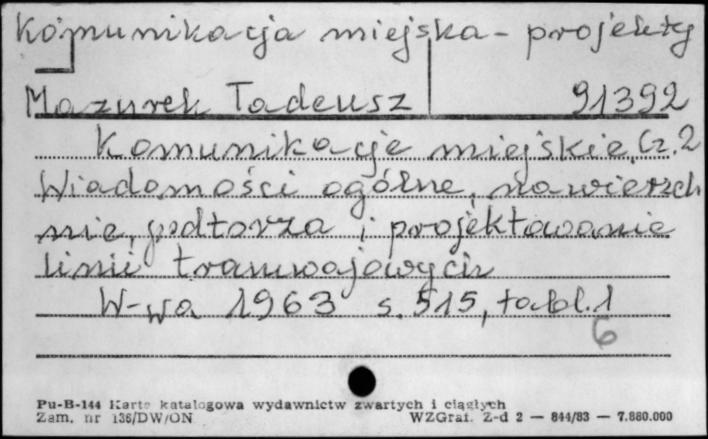 Komunikacja miejska - projekty
Mazurek Tadeusz 91392
Komunikacje miejskie, Cz. 2
Wiadomości ogólne, nawierzch
nie, podtorza i projektowanie
linii tramwajowych
W-wa 1963 s. 515, tabl. 1
6
Pu-B-144 Karta katalogowa wydawnictw zwartych i ciągłych
Zam. nr 136/DW/ON WZGraf. Z-d 2 — 844/83 — 7.880.000